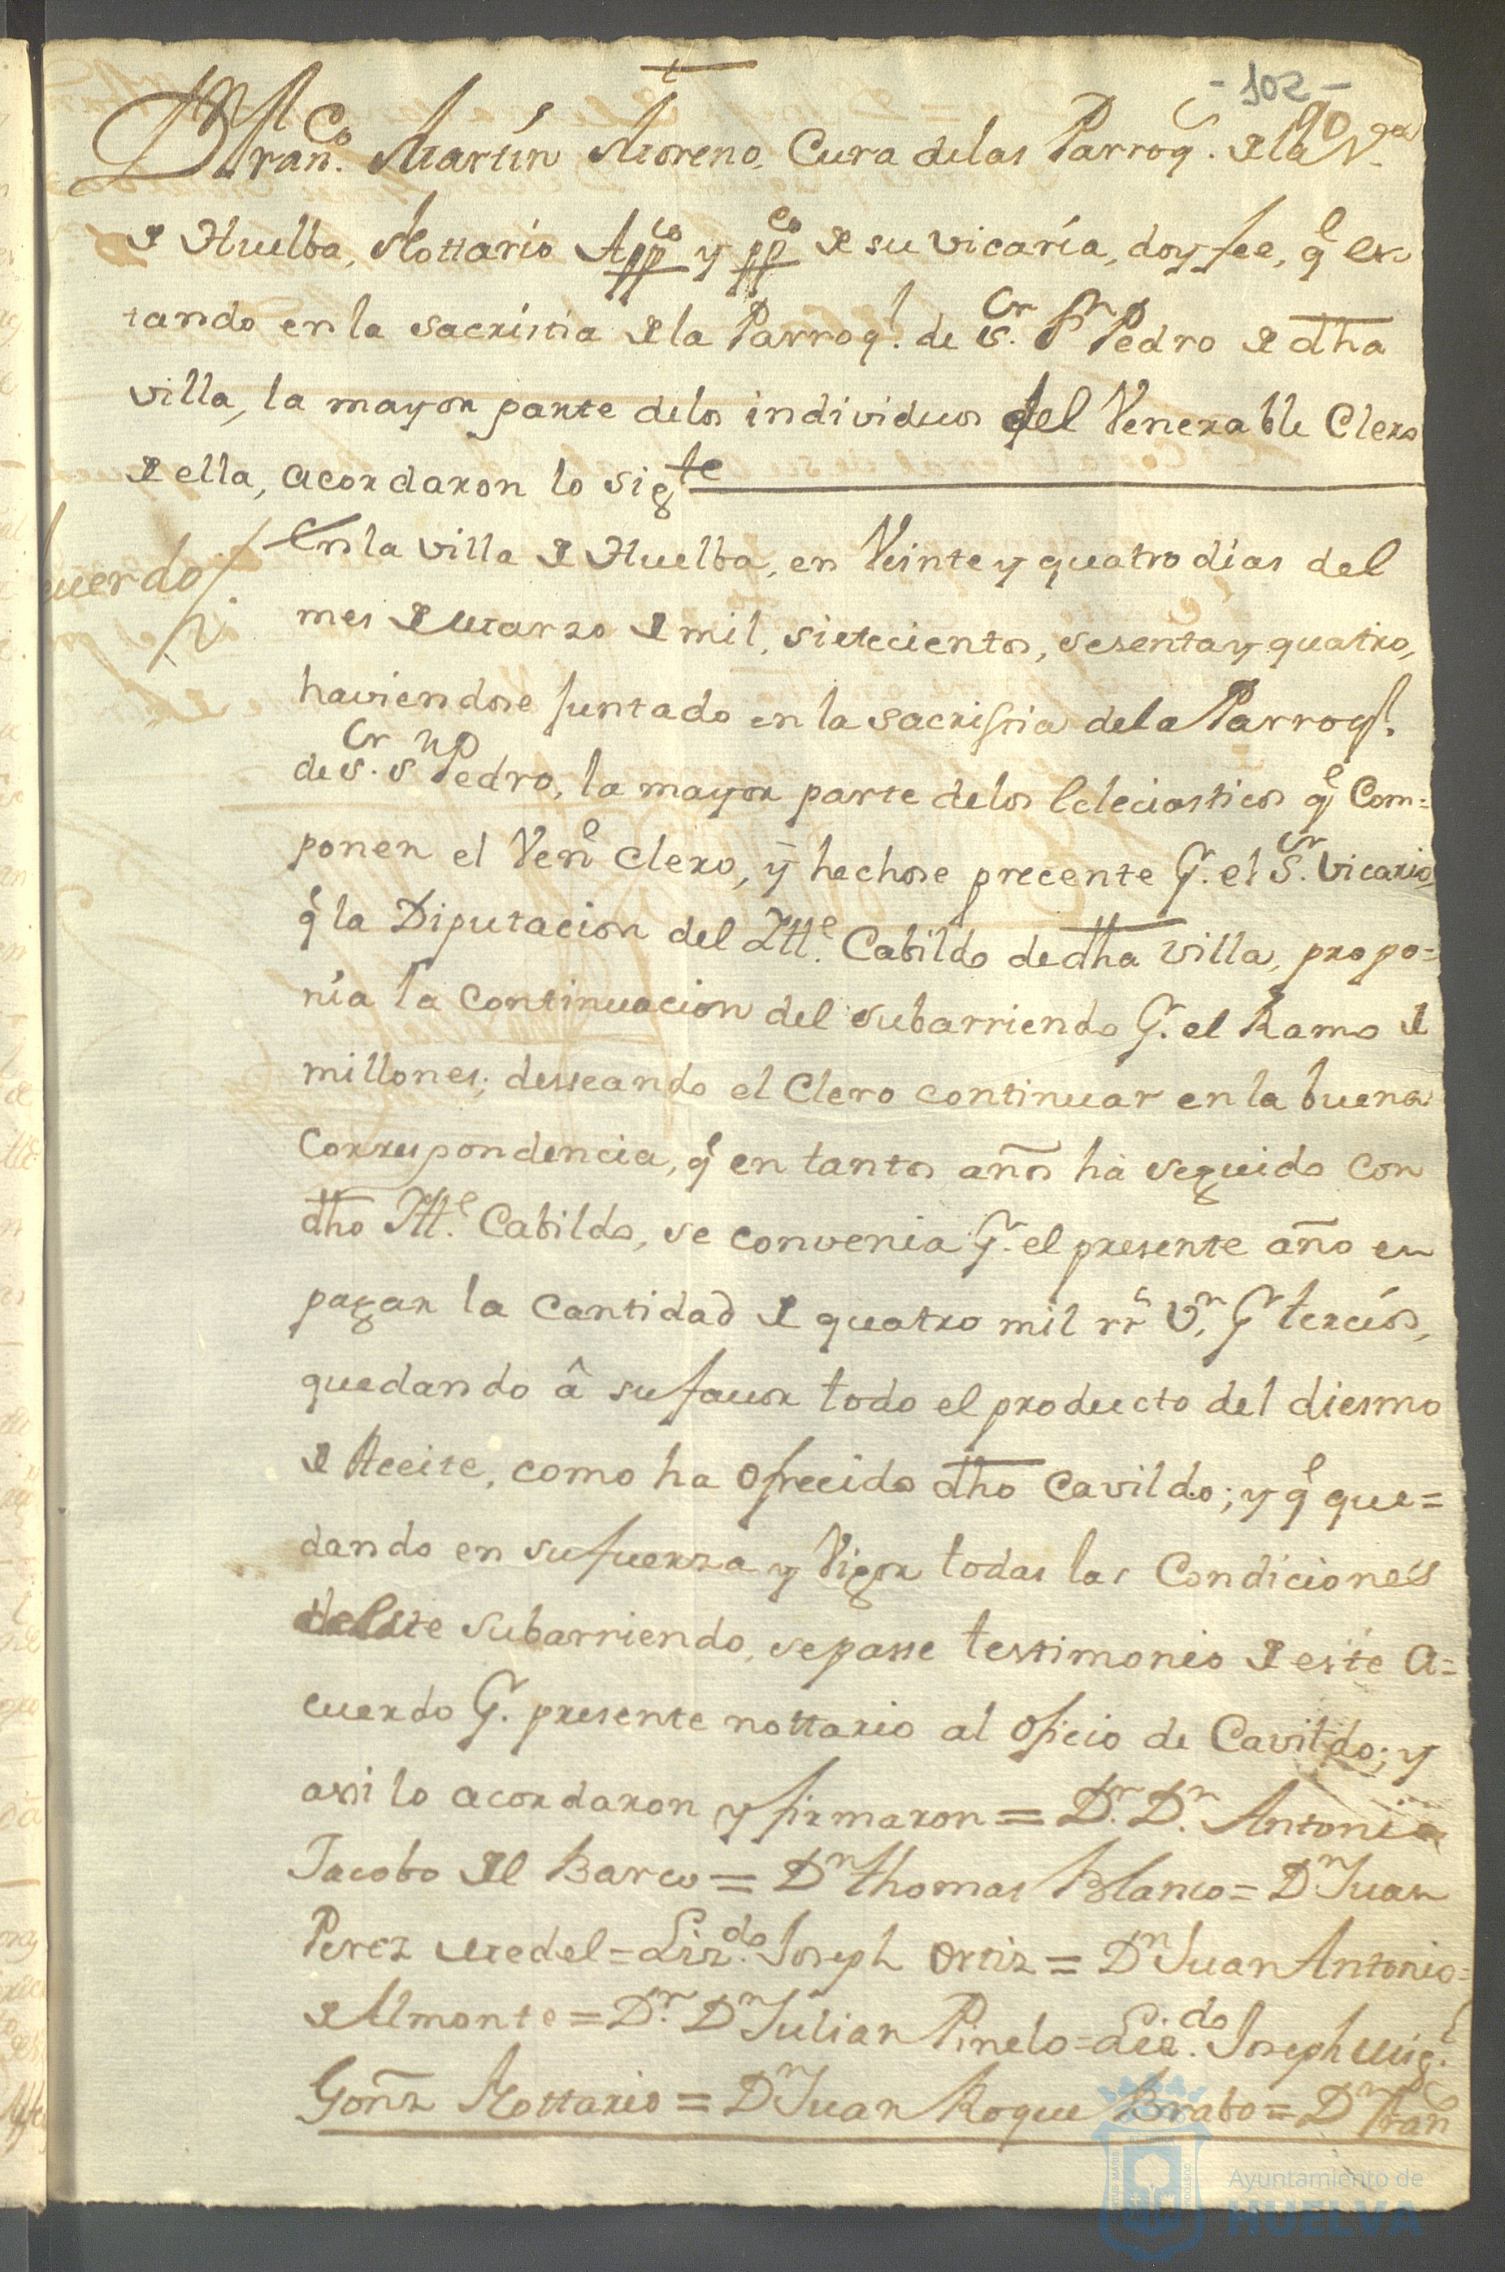 t
- 102 -
90
Dn Franco. Martín Moreno, Cura de las Parroqs. de la Va.
de Huelba, Nottario Appco y ppco de su vicaría, doy fee, qe es
tando en la sacristia de la Parroql. de Sr. Sn Pedro de dha
villa, la mayor parte delos individuos del Venerable Clero
de ella, acordaron lo sigte
cuerdo/
En la villa de Huelba, en Veinte y quatro dias del
mes de Marzo de mil, setecientos, sesenta y quatro,
haviendose juntado en la sacristia dela Parroql.
de Sr. Sn Pedro, la mayor parte delos Ecleciasticos qe Com=
ponen el Vene Clero, y hechose precente Pr. el Sr. Vicario,
qe la Diputacion del Itte. Cabildo de dha villa, propo=
nía la continuacion del subarriendo Pr. el Ramo de
millones; desseando el Clero continuar en la buena
Correspondencia, qe en tantos años ha seguido con
dho Itte. Cabildo, se convenia Pr. el presente año en
pagar la cantidad de quatro mil rrs Vn, Pr tercios,
quedando â su favor todo el producto del diesmo
de Aceite, como ha ofrecido dho Cavildo; y qe que=
dando en su fuerza y Vigor todas las Condiciones
deleste subarriendo, se passe testimonio de este a=
cuerdo Pr. presente nottario al oficio de Cavildo; y
assi lo acordaron y firmaron = Dr. Dn. Antonio
Jacobo del Barco = Dn Thomas Blanco = Dn Juan
Perez Medel = Lizdo. Joseph Ortiz = Dn Juan Antonio=
de Almonte = Dr. Dn Julian Pinelo = Licdo. Joseph Migl.
Gonz Nottario = Dn Juan Roque Brabo = Dn Franco
Ayuntamiento de
HUELVA